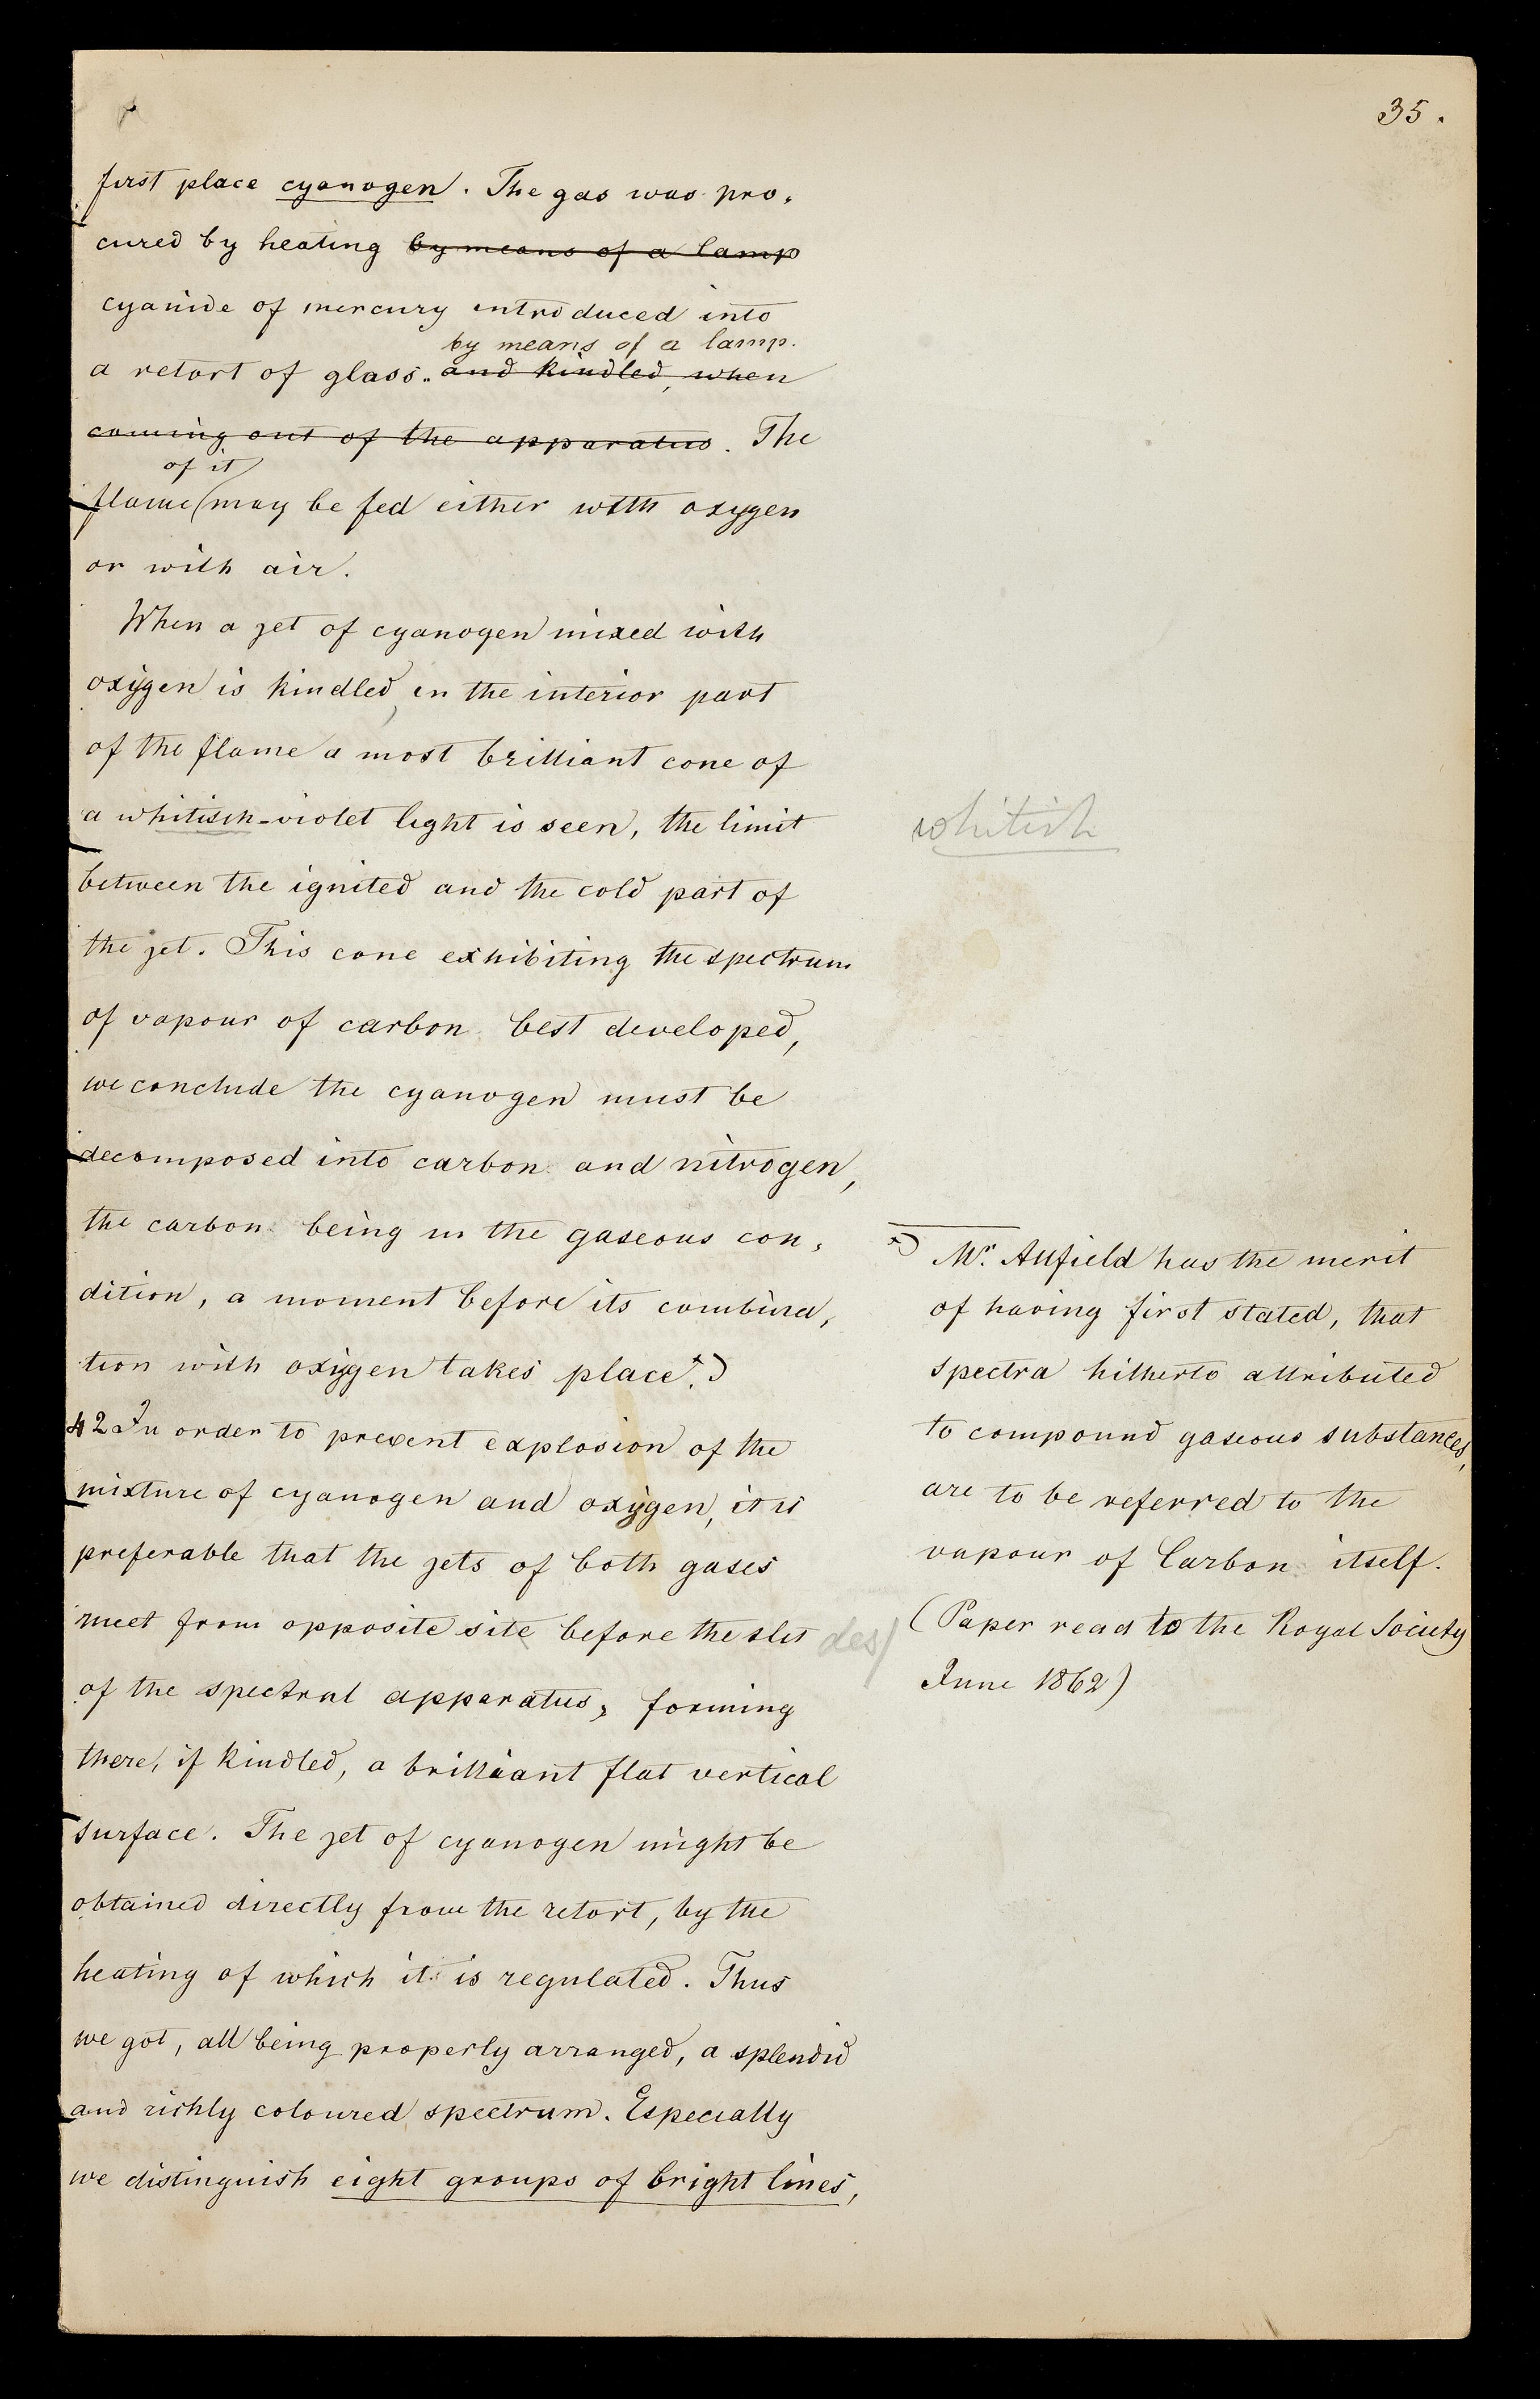 35.
first place cyanogen. The gas was pro,
cured by heating by means of a lamp
cyanide of mercury introduced into
by means of a lamp.
a retort of glass. and kindled, when
coming out of the apparatus. The
of it
flame may be fed either with oxygen
or with air.
When a jet of cyanogen mixed with
oxigen is kindled, in the interior part
of the flame a most brilliant cone of
a whitisch-violet light is seen, the limit
whitish
between the ignited and the cold part of
the jet. This cone exhibiting the spectrum
of vapour of carbon best developed,
we conclude the cyanogen must be
decomposed into carbon and nitrogen,
the carbon being in the gaseous con,
dition, a moment before its combina,
tion with oxigen takes place.*)
42 In order to prevent explosion of the
mixture of cyanogen and oxigen, it is
preferable that the jets of both gases
meet from opposite site before the slit
des/
of the spectral apparatus, forming
there, if kindled, a brilliant flat vertical
surface. The jet of cyanogen might be
obtained directly from the retort, by the
heating of which it is regulated. Thus
we got, all being properly arranged, a splendid
and richly coloured spectrum. Especially
we distinguish eight groups of bright lines,
*) Mr. Attfield has the merit
of having first stated, that
spectra hitherto attributed
to compound gaseous substances,
are to be referred to the
vapour of Carbon itself.
(Paper read to the Royal Society
June 1862)